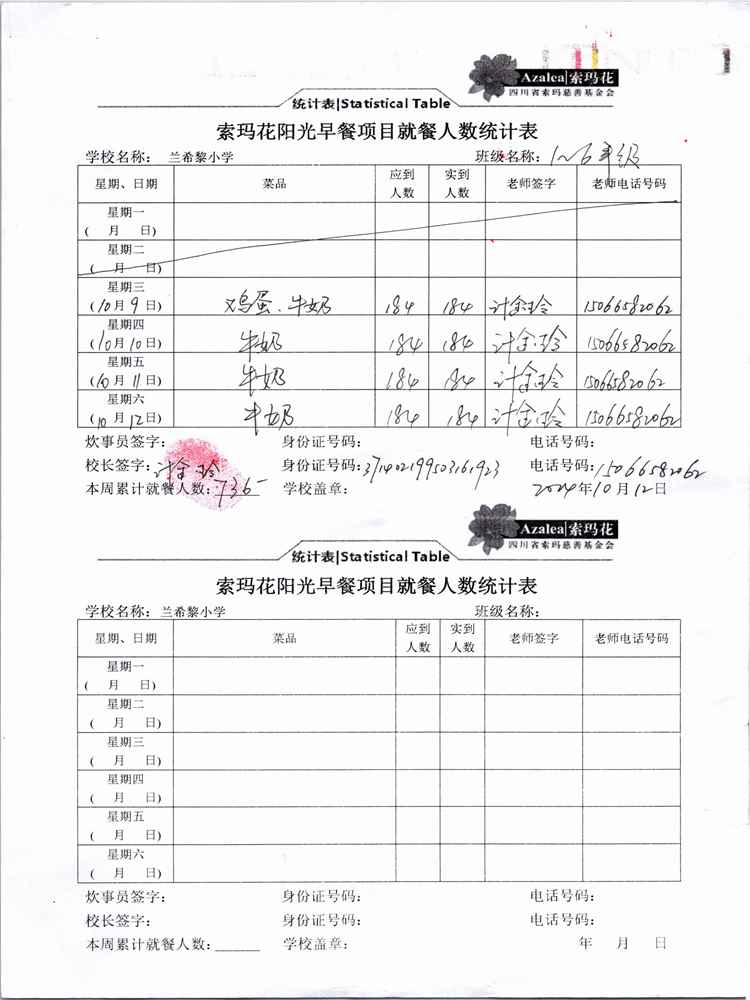 Azalea|索玛花
四川省索玛慈善基金会
统计表|Statistical Table
索玛花阳光早餐项目就餐人数统计表
学校名称：兰希黎小学 班级名称：1~6年级
星期、日期 菜品 应到人数 实到人数 老师签字 老师电话号码
星期一
( 月 日)
星期二
( 月 日)
星期三
(10月9日) 鸡蛋、牛奶 184 184 计金玲 15066582062
星期四
(10月10日) 牛奶 184 184 计金玲 15066582062
星期五
(10月11日) 牛奶 184 184 计金玲 15066582062
星期六
(10月12日) 牛奶 184 184 计金玲 15066582062
炊事员签字： 身份证号码： 电话号码：
校长签字：计金玲 身份证号码：371402199503161923 电话号码：15066582062
本周累计就餐人数：736 学校盖章： 2024年10月12日
Azalea|索玛花
四川省索玛慈善基金会
统计表|Statistical Table
索玛花阳光早餐项目就餐人数统计表
学校名称：兰希黎小学 班级名称：
星期、日期 菜品 应到人数 实到人数 老师签字 老师电话号码
星期一
( 月 日)
星期二
( 月 日)
星期三
( 月 日)
星期四
( 月 日)
星期五
( 月 日)
星期六
( 月 日)
炊事员签字： 身份证号码： 电话号码：
校长签字： 身份证号码： 电话号码：
本周累计就餐人数：______ 学校盖章： 年 月 日